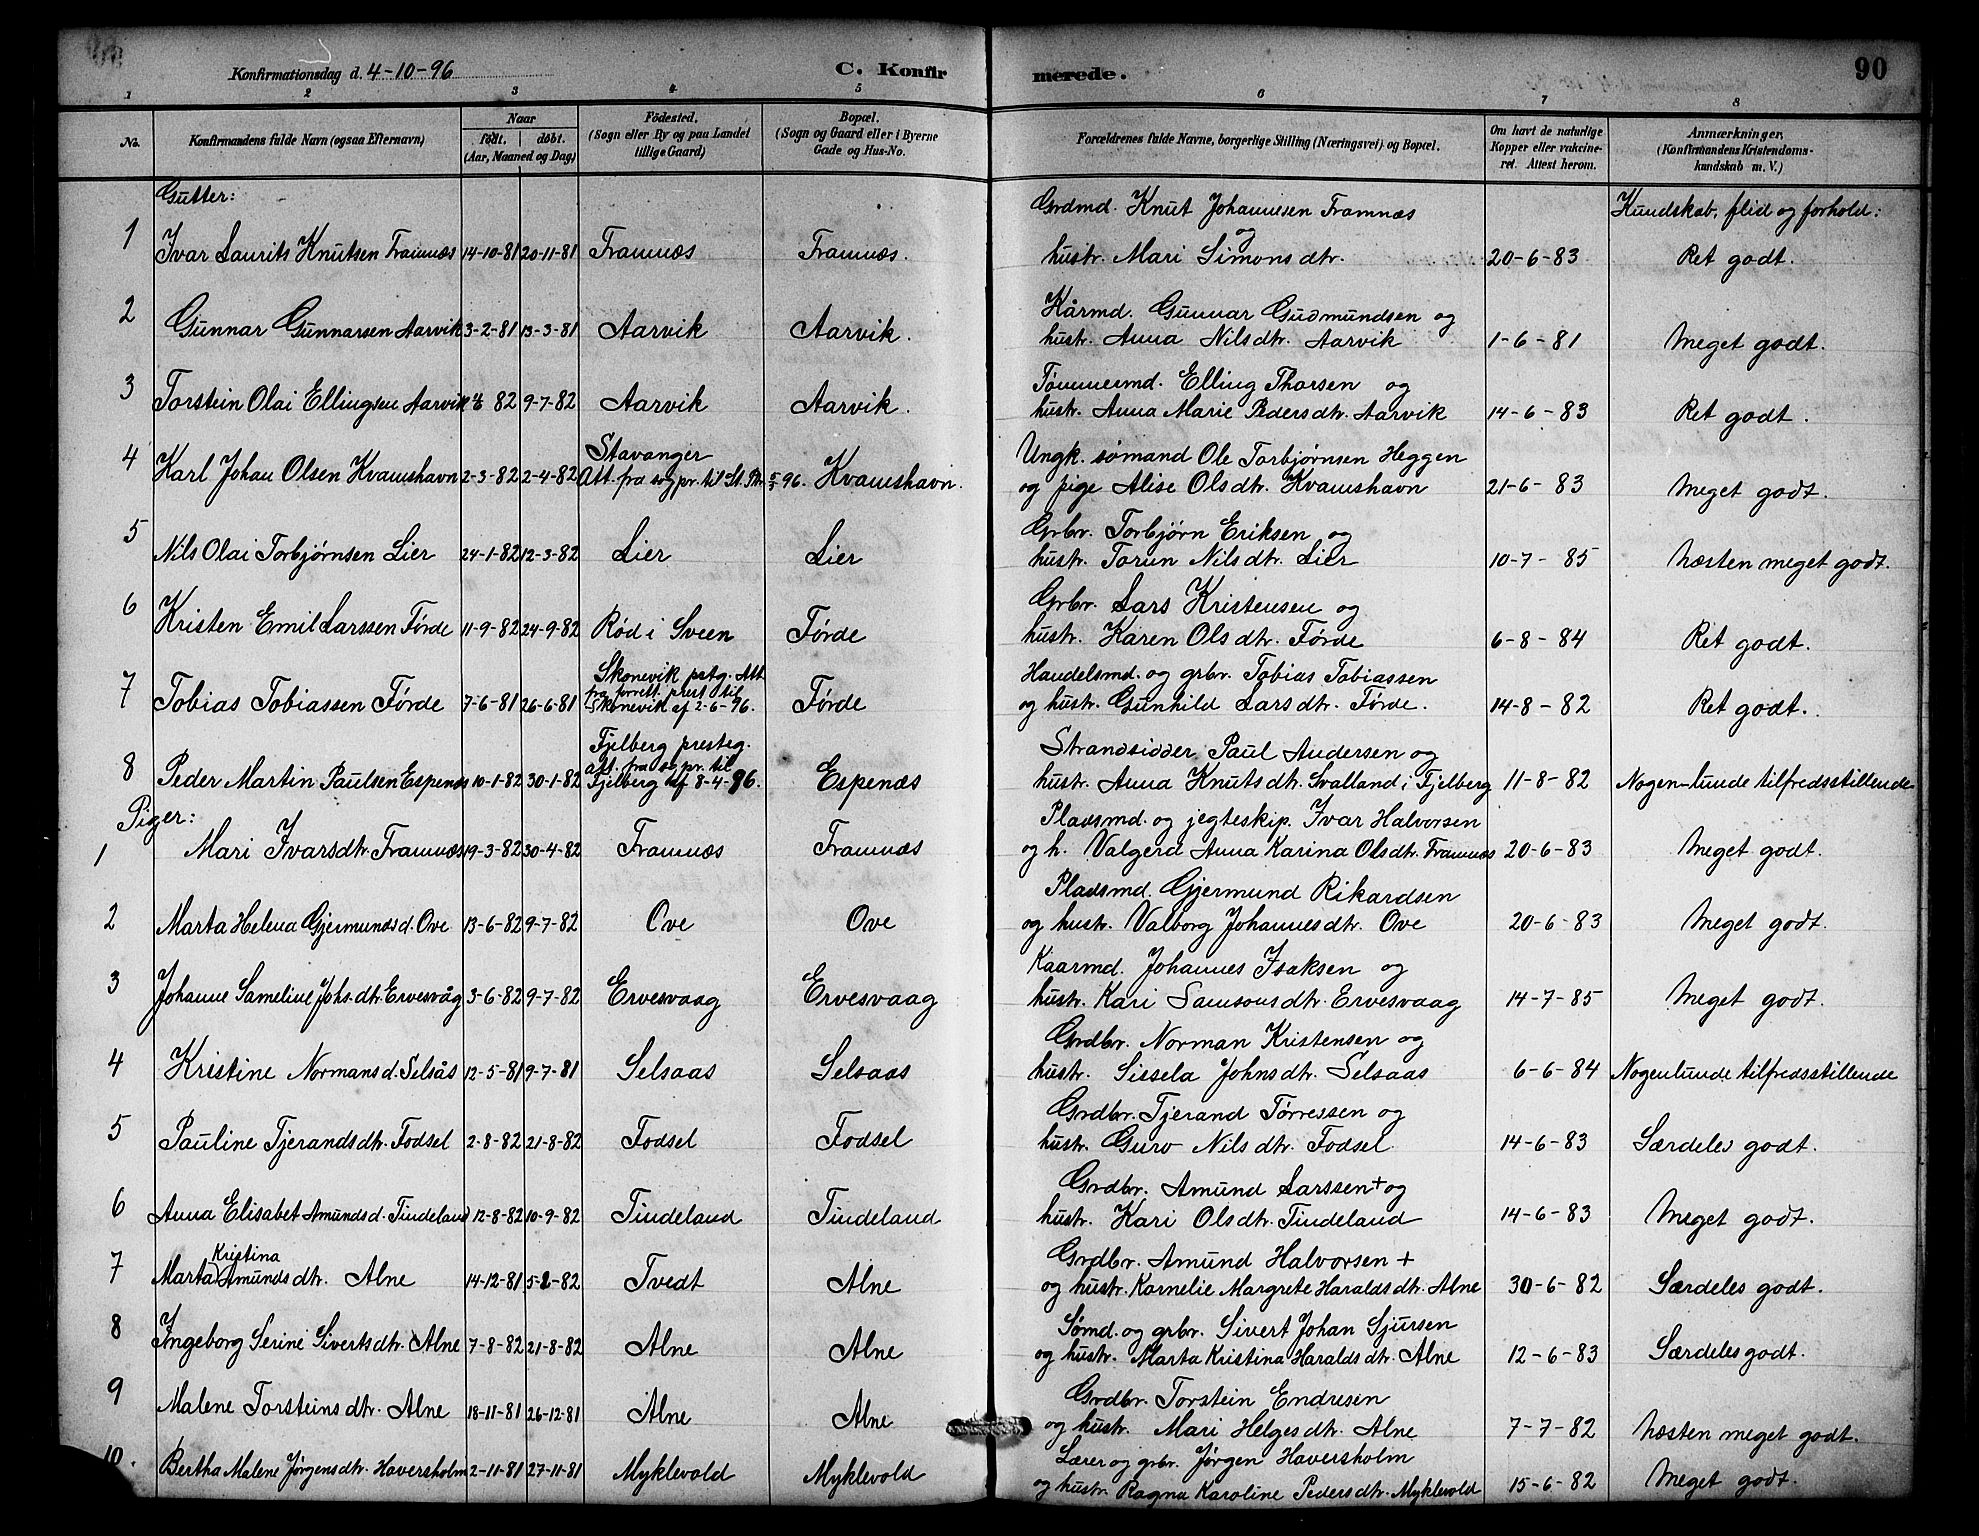 Konfirmationsdag d. 4-10-96 C. Konfirmerede. 90
1 2 3 4 5 6 7 8
No. Konfirmandens fulde Navn (ogsaa Efternavn) Naar födt. döbt. (Aar, Maaned og Dag) Födested. (Sogn eller By og paa Landet tillige Gaard) Bopæl. (Sogn og Gaard eller i Byerne Gade og Hus-No. Forældrenes fulde Navne, borgerlige Stilling (Næringsvei) og Bopæl. Om havt de naturlige Kopper eller vakcineret. Attest herom. Anmærkninger, (Konfirmandens Kristendomskundskab m. V.)
Gutter: Kundskab, flid og forhold:
1 Ivar Laurits Knutsen Framnæs 14-10-81 20-11-81 Framnæs Framnæs. Grdmd. Knut Johannesen Framnæs og
hustr. Mari Simonsdtr. 20-6-83 Ret godt.
2 Gunnar Gunnarsen Aarvik 3-2-81 13-3-81 Aarvik Aarvik. Kårmd. Gunnar Gudmundsen og
hustr. Anna Nilsdtr. Aarvik 1-6-81 Meget godt.
3 Torstein Olai Ellingsen Aarvik 82 9-7-82 Aarvik Aarvik. Tømmermd. Elling Thorsen og
hustr. Anna Marie Pedersdtr. Aarvik 14-6-83 Ret godt.
4 Karl Johan Olsen Kvamshavn 2-3-82 2-4-82 Stavanger Att. fra sogpr. til St. Ptr. 96. Kvamshavn. Ungk. sømand Ole Torbjørnsen Heggen
og pige Alise Olsdtr. Kvamshavn 21-6-83 Meget godt.
5 Nils Olai Torbjørnsen Lier 24-1-82 12-3-82 Lier Lier Grbr. Torbjørn Eriksen og
hustr. Torun Nilsdtr. Lier 10-7-85 Næsten meget godt.
6 Kristen Emil Larssen Førde 11-9-82 24-9-82 Rød i Sveen Førde Grbr. Lars Kristensen og
hustr. Karen Olsdtr. Førde 6-8-84 Ret godt.
7 Tobias Tobiassen Førde 7-6-81 26-6-81 Skonevik pstg. Att. fra forrett. prest til Skonevik af 2-6-96. Førde Handelsmd. og grbr. Tobias Tobiassen
og hustr. Gunhild Larsdtr. Førde. 14-8-82 Ret godt.
8 Peder Martin Paulsen Espenæs 10-1-82 30-1-82 Fjelberg presteg. att. fra sogpr. til Fjelberg af 8-4-96. Espenæs Strandsidder Paul Andersen og
hustr. Anna Knutsdtr. Svalland i Fjelberg 11-8-82 Nogen-lunde tilfredsstillende
Piger:
1 Mari Ivarsdtr. Framnæs 19-3-82 30-4-82 Framnæs Framnæs Pladsmd. og jegteskip. Ivar Halvorsen
og h. Valgerd Anna Karina Olsdtr. Framnæs 20-6-83 Meget godt.
2 Marta Helena Gjermundsd. Ove 13-6-82 9-7-82 Ove Ove Pladsmd. Gjermund Rikardsen
og hustr. Valborg Johannesdtr. Ove 20-6-83 Meget godt.
3 Johanne Sameline Johs.dtr. Ervesvåg 3-6-82 9-7-82 Ervesvaag Ervesvaag Kaarmd. Johannes Isaksen og
hustr. Kari Samsonsdtr. Ervesvaag 14-7-85 Meget godt.
4 Kristine Normansd. Selsås 12-5-81 9-7-81 Selsaas Selsaas Grdbr. Norman Kristensen og
hustr. Sissela Johnsdtr. Selsaas 6-6-84 Nogenlunde tilfredsstillende
5 Pauline Tjerandsdtr. Fodsel 2-8-82 21-8-82 Fodsel Fodsel Grdbr. Tjerand Tørressen og
hustr. Guro Nilsdtr. Fodsel. 14-6-83 Særdeles godt.
6 Anna Elisabet Amundsd. Tindeland 12-8-82 10-9-82 Tindeland Tindeland Grdbr. Amund Larssen + og
hustr. Kari Olsdtr. Tindeland 14-6-83 Meget godt.
7 Marta Kristina Amundsdtr. Alne 14-12-81 82 Tvedt Alne Grdbr. Amund Halvorsen +
og hustr. Kornelie Margrete Haraldsdtr. Alne 30-6-82 Særdeles godt.
8 Ingeborg Serine Sivertsdtr. Alne 7-8-82 21-8-82 Alne Alne Sømd. og grbr. Sivert Johan Sjursen
og hustr. Marta Kristina Haraldsdtr. Alne 12-6-83 Særdeles godt.
9 Malene Torsteinsdtr. Alne 18-11-81 26-12-81 Alne Alne Grdbr. Torstein Endresen
og hustr. Mari Helgesdtr. Alne 7-7-82 Næsten meget godt.
10. Bertha Malene Jørgensdtr. Haversholm 2-11-81 27-11-81 Myklevold Myklevold Lærer og grbr. Jørgen Haversholm
og hustr. Ragna Karoline Pedersdtr. Myklevold 15-6-82 Meget godt.